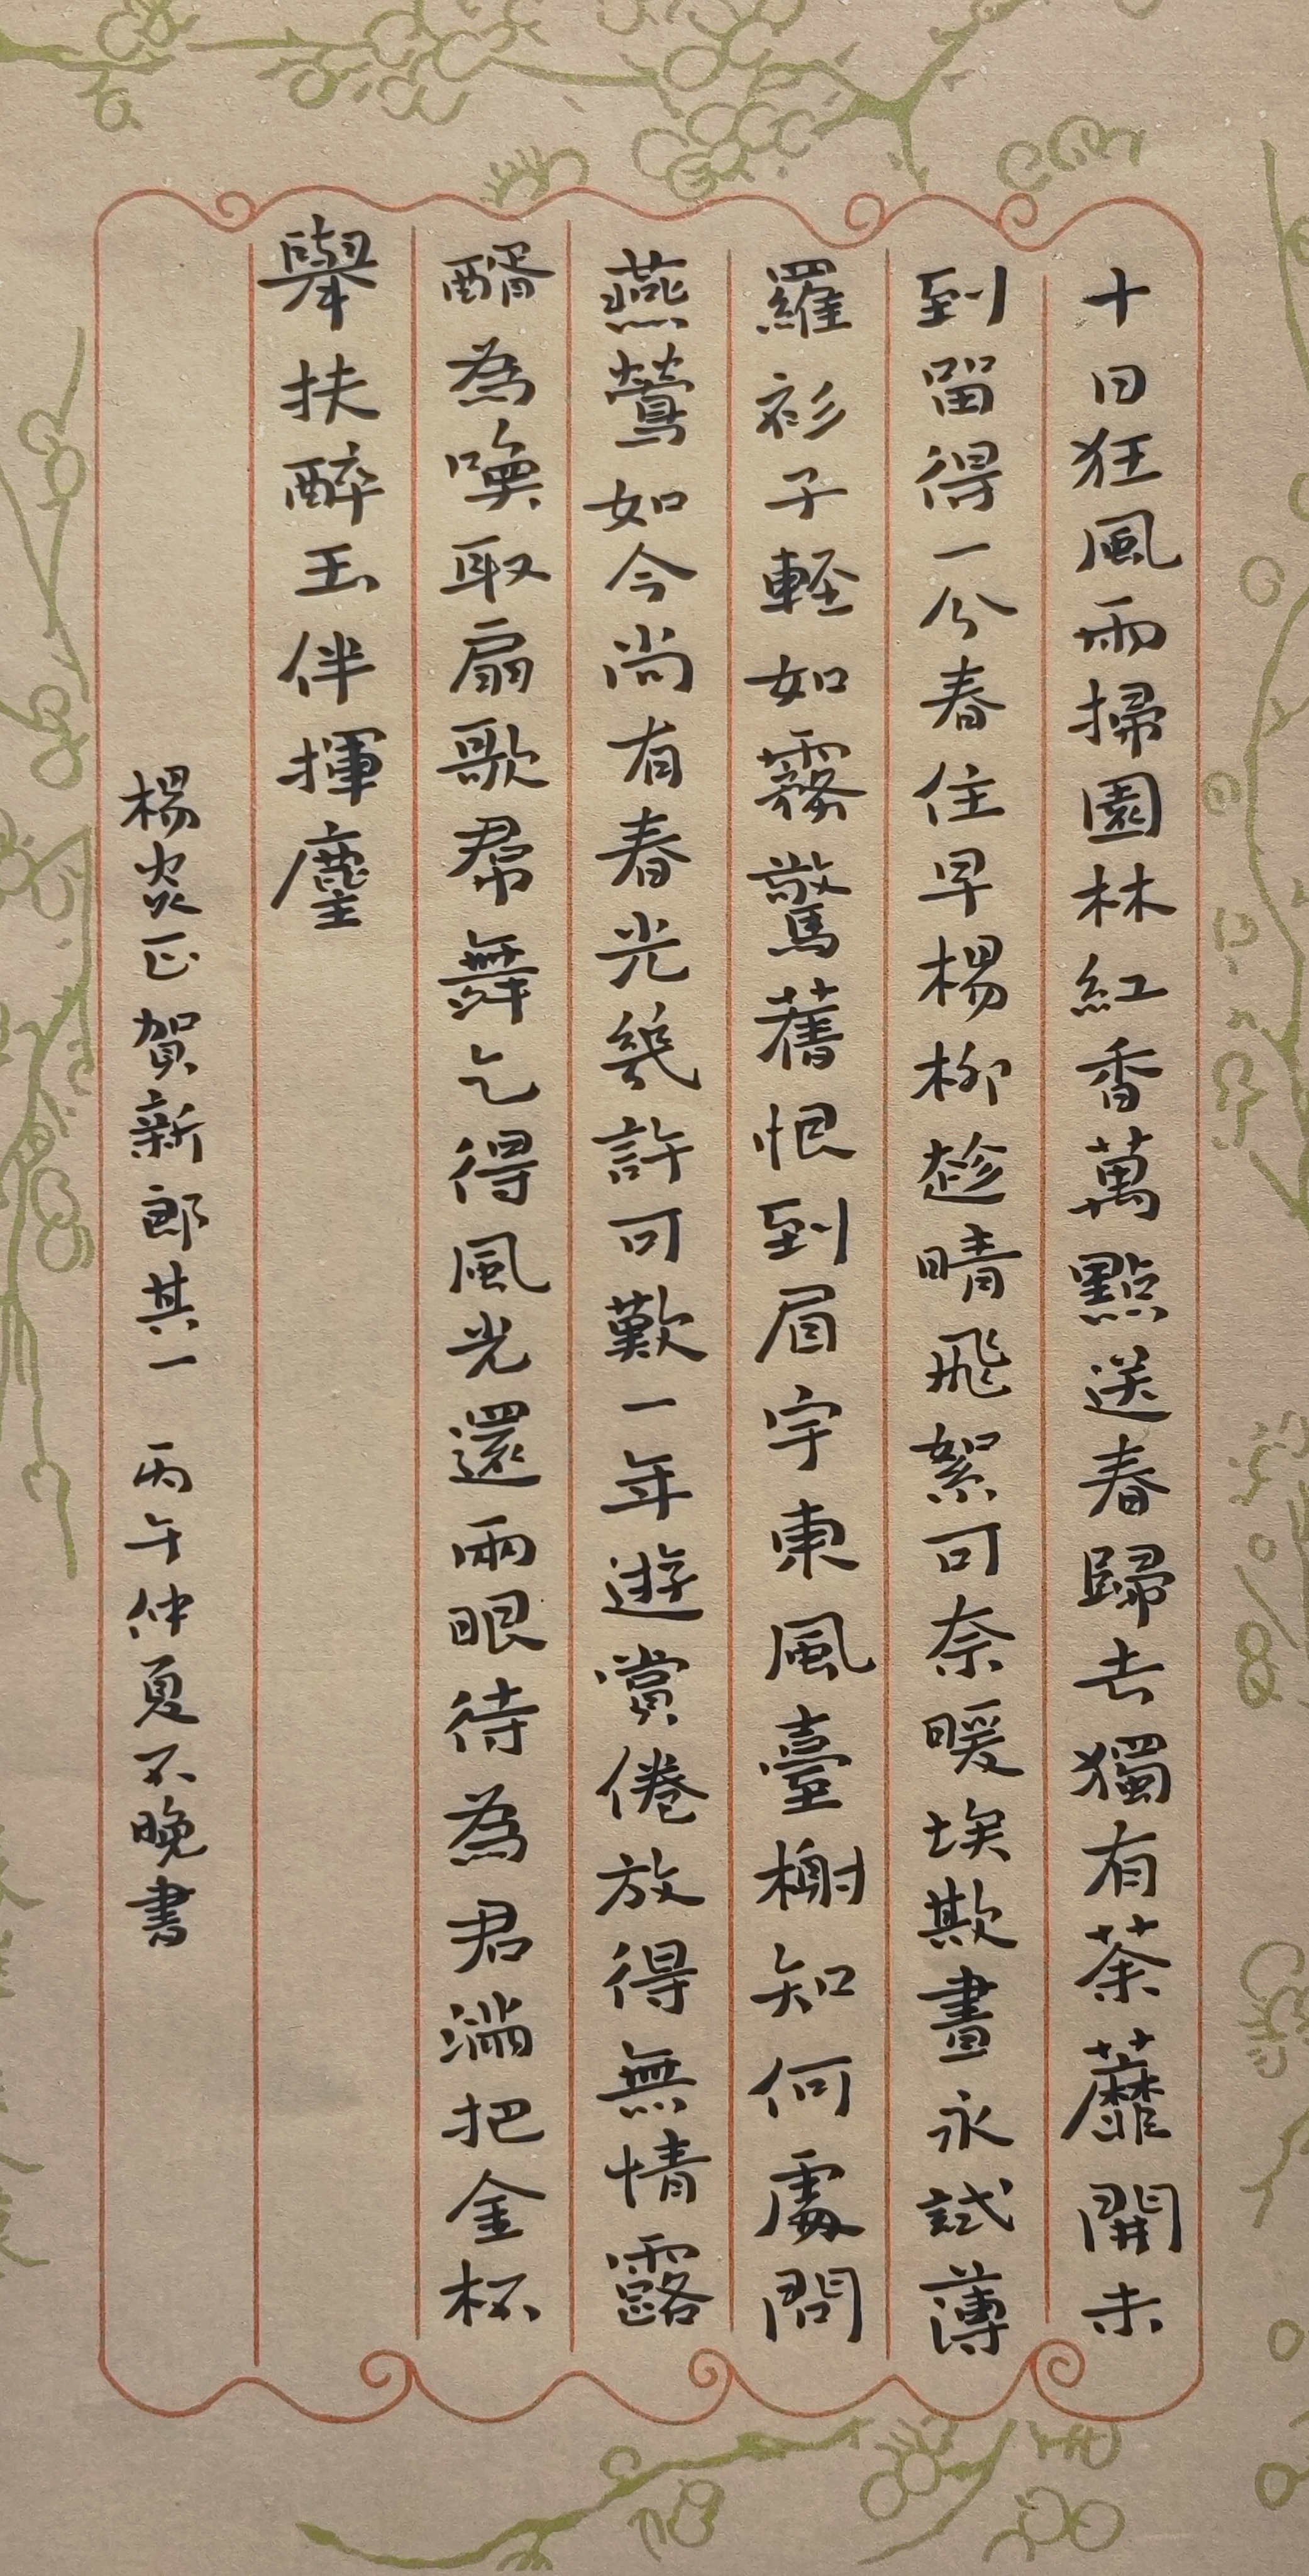 十日狂風雨掃園林紅香萬點送春歸去獨有荼蘼開未
到留得一分春住早楊柳趁晴飛絮可奈暖埃欺晝永試薄
羅衫子輕如霧驚舊恨到眉宇東風臺榭知何處問
燕鶯如今尚有春光幾許可歎一年遊賞倦放得無情露
醑為喚取扇歌帬舞乞得風光還兩眼待為君滿把金杯
舉扶醉玉伴揮麈
楊炎正賀新郎其一 丙午仲夏不晚書